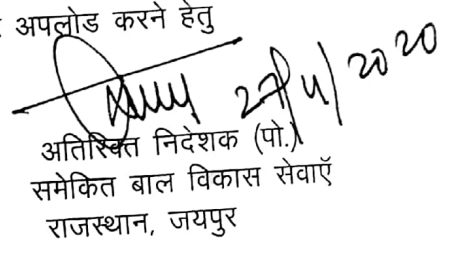 अपलोड करने हेतु
27/4/2020
अतिरिक्त निदेशक (पो.)
समेकित बाल विकास सेवाएॅ
राजस्थान, जयपुर